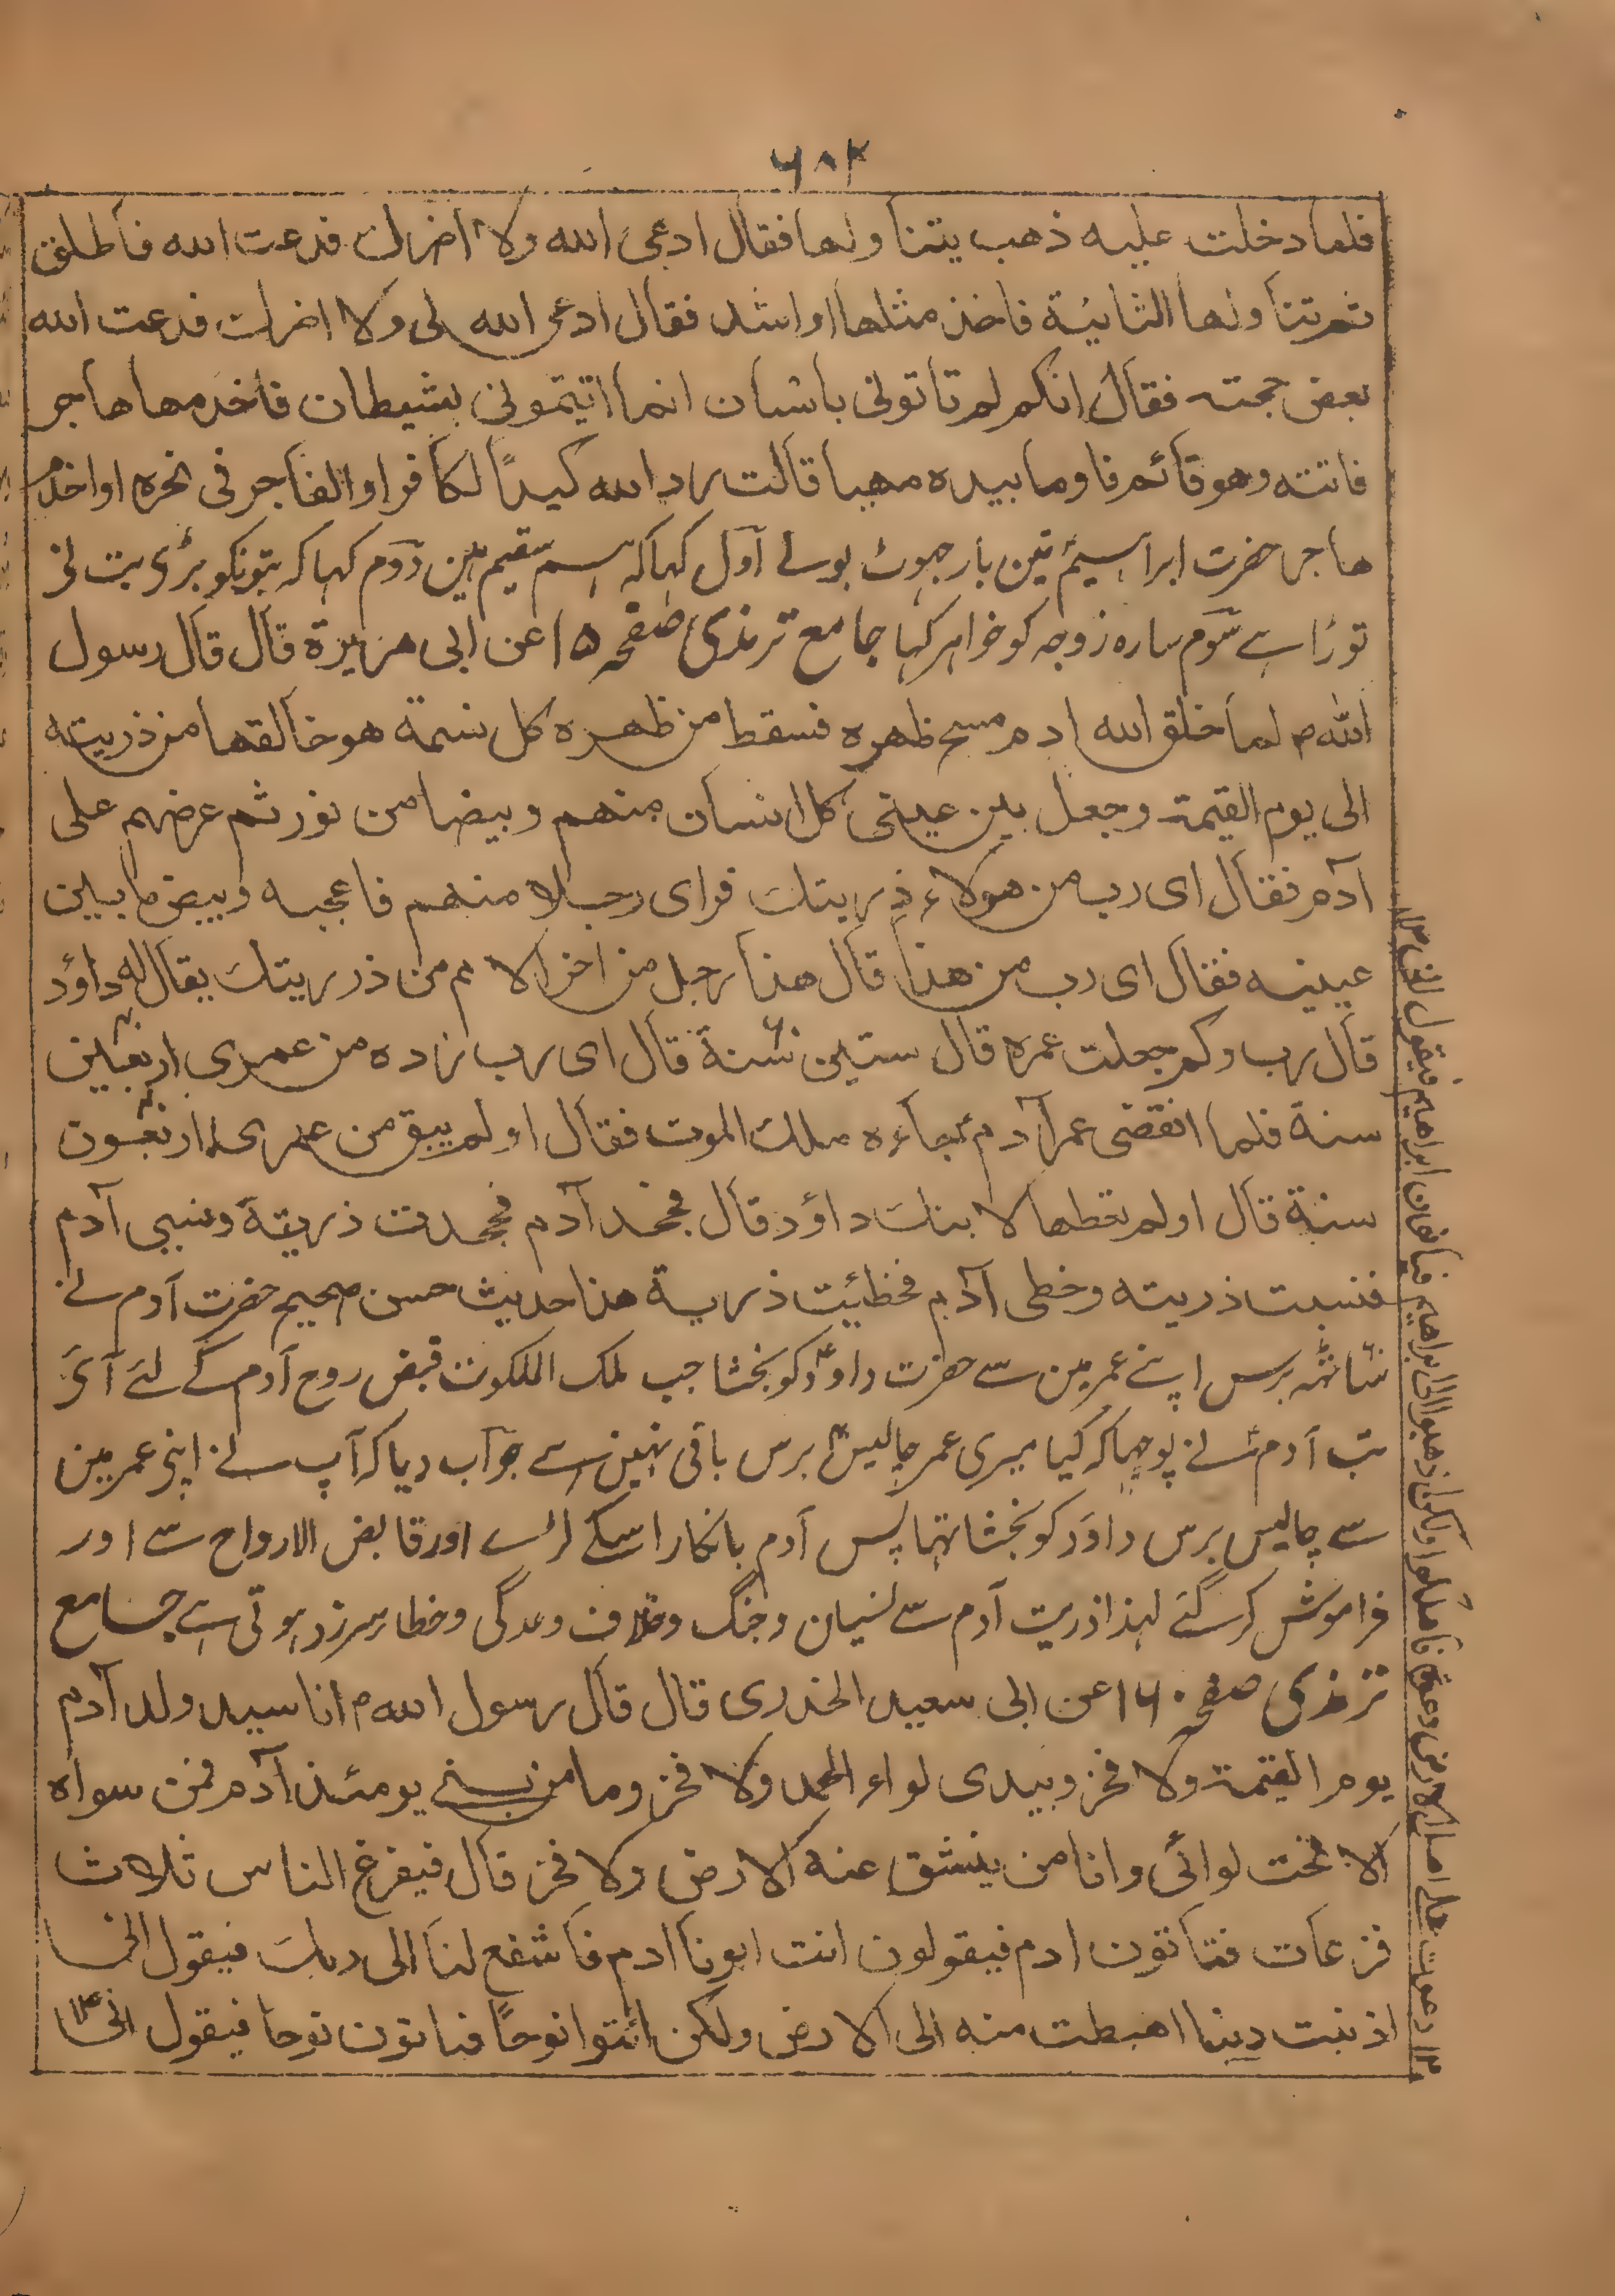 ۶۸۲
فلما دخلت عليه ذهب يتنا ولها فقال ادعى الله ولا اضرك فدعت الله فاطلق
ثم تنا ولها الثانية فاخذ مثلها او اشد فقال ادعى الله لى ولا اضرك فدعت الله
بعض حجته فقال انكم لم تاتونى بانسان انما اتيتمونى بشيطان فاخدمها هاجر
فاتته وهو قائم فاوما بيده مهيا قالت رد الله كيدًا لكافر او الفاجر فى نحره او اخدم
هاجر حضرت ابراہیمؑ تین بار جہوٹ بولے اول کہا کہ ہم سقیم ہین دوم کہا کہ بتونکو بڑی بت نے
توڑا ہے سوم سارہ زوجہ کو خواہر کہا جامع ترمذی صفحہ ۱۵ عن ابى هريرة قال قال رسول
اللهم لما خلق الله ادم مسح ظهره فسقط من ظهره كل نسمة هو خالقها من ذريته
الى يوم القيمة وجعل بين عينى كل انسان منهم وبيضا من نور ثم عرضهم على
آدم فقال اى رب من هولاء ذريتك فراى رجلا منهم فاعجبه وبيض مابين
عينيه فقال اى رب من هذا قال هذا رجل من اخر الامم من ذريتك يقال له داؤد
قال رب وكم جعلت عمره قال ستين سنة قال اى رب زده من عمرى اربعين
سنة فلما انقضى عمر آدم جاءه ملك الموت فقال اولم يبق من عمرى اربعون
سنة قال اولم تعطها لابنك داؤد قال فجحد آدم فجحدت ذريتة ونسى آدم
فنسيت ذريته وخطى آدم فخطئيت ذرية هذا حديث حسن صحيح حضرت آدم نے
ساٹہہ برس اپنے عمر مین سے حضرت داوؑد کو بخشا جب ملک الملکوت قبض روح آدم کے لئے آئے
تب آدمؑ نے پوچہا کہ کیا میری عمر چالیس برس باقی نہین ہے جواب دیا کہ آپ نے اپنی عمر مین
سے چالیس برس داوَد کو بخشا تہا پس آدم بانکار اسکے لڑے اور قابض الارواح سے اور
فراموش کر گئے لہذا ذریت آدم سے نسیان وجنگ وخلاف وعدگی وخطا سرزد ہوتی ہے جامع
ترمذی صفحہ ۱۶۰ عن ابى سعيد الخدرى قال قال رسول اللهم انا سيد ولد آدم
يوم القيمة ولا فخر وبيدى لواء الحمد ولا فخر وما من نبى يومئذ آدم فمن سواه
الا تحت لوائى وانا من ينشق عنه الارض ولا فخر قال فيفزع الناس ثلاث
فزعات فتاتون ادم فيقولون انت ابونا ادم فاشفع لنا الى ربك فيقول انى
اذنبت دينا اهبطت منه الى الارض ولكن ائتوا نوحًا فياتون نوحا فيقول انى
دعوت على اهل الارض دعوة فاهلكوا ولكن اذهبوا الى ابراهيم فياتون ابراهيم فيقول